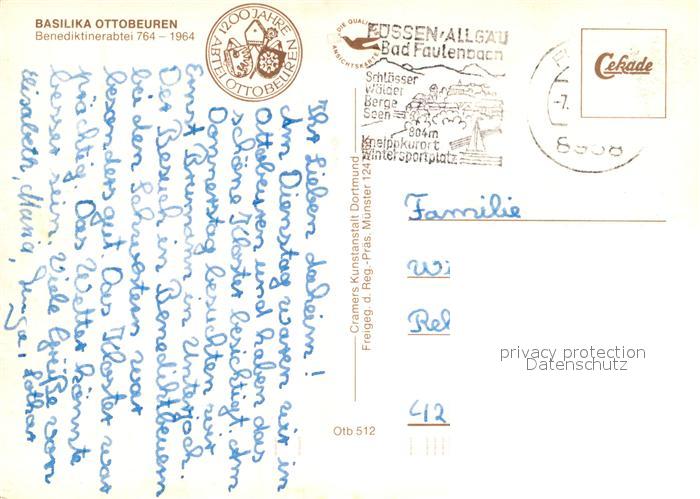 BASILIKA OTTOBEUREN
Benediktinerabtei 764 – 1964
1200 JAHRE
ABTEI OTTOBEUREN
DIE QUALITÄTS
ANSICHTSKARTE
FÜSSEN/ALLGÄU
Bad Faulenbach
Schlösser
Wälder
Berge
Seen
804m
Kneippkurort
Wintersportplatz
-7.
Cekade
Ihr Lieben daheim!
Am Dienstag waren wir in
Ottobeuren und haben das
schöne Kloster besichtigt. Am
Donnerstag besuchten wir
Ernst Brumann in Unterjoch
Der Besuch in Benediktbeuern
bei den Schwestern war
besonders gut. Das Kloster war
prächtig. Das Wetter könnte
besser sein. Viele Grüße von
Elisabeth, Maria, Lothar
Cramers Kunstanstalt Dortmund
Freigeg. d. Reg.-Präs. Münster 124
Otb 512
Familie
Wi
Rel
42
privacy protection
Datenschutz